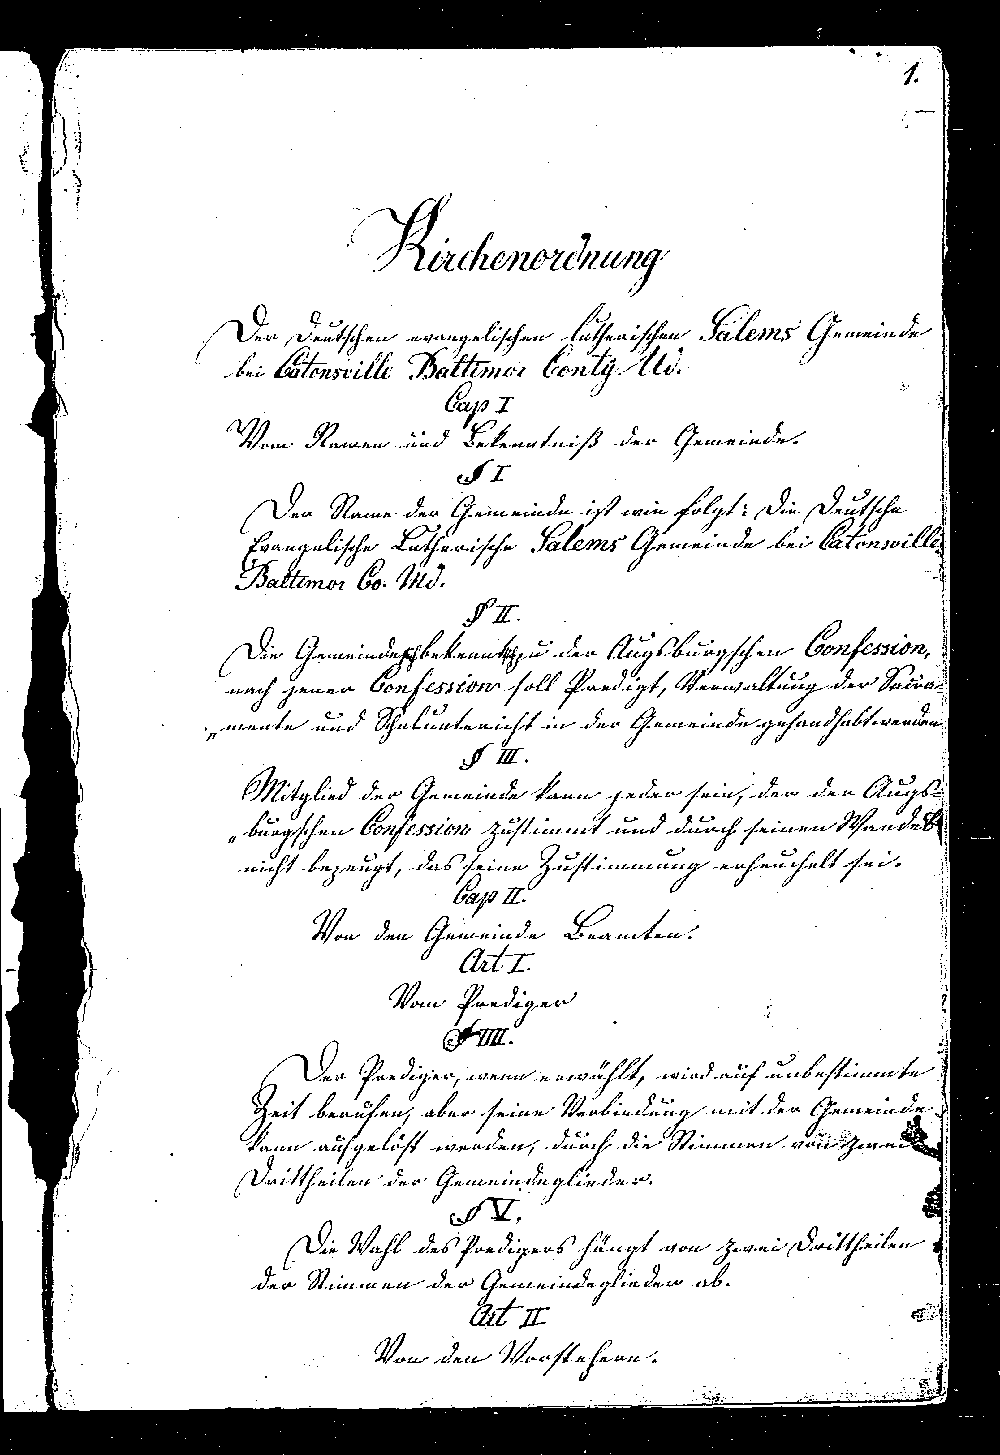 1.
Kirchenordnung
Der Deutschen evangelischen lutherischen Salems Gemeinde
bei Catonsville Baltimor Conty Md.
Cap I
Vom Namen und Bekenntniß der Gemeinde.
§ I
Der Name der Gemeinde ist wie folgt: Die Deutsche
Evangelische Lutherische Salems Gemeinde bei Catonsville
Baltimor Co. Md.
§ II.
Die Gemeinde bekennt zu der Augsburgschen Confession,
nach jener Confession soll Predigt, Verwaltung der Sacra-
„mente und Schulunterricht in der Gemeinde gehandhabt werden
§ III.
Mitglied der Gemeinde kann jeder sein, der der Augs-
„burgschen Confession zustimmt und durch seinen Wandel
nicht bezeugt, das seine Zustimmung erheuchelt sei.
Cap II.
Von den Gemeinde Beamten.
Art I.
Vom Prediger
§ IIII.
Der Prediger, wenn erwählt, wird auf unbestimmte
Zeit berufen, aber seine Verbindung mit der Gemeinde
kann aufgelöst werden, durch die Stimmen von zwei
Drittheilen der Gemeindeglieder.
§ V.
Die Wahl des Predigers hängt von zwei Drittheilen
der Stimmen der Gemeindeglieder ab.
Art II
Von den Vorstehern.